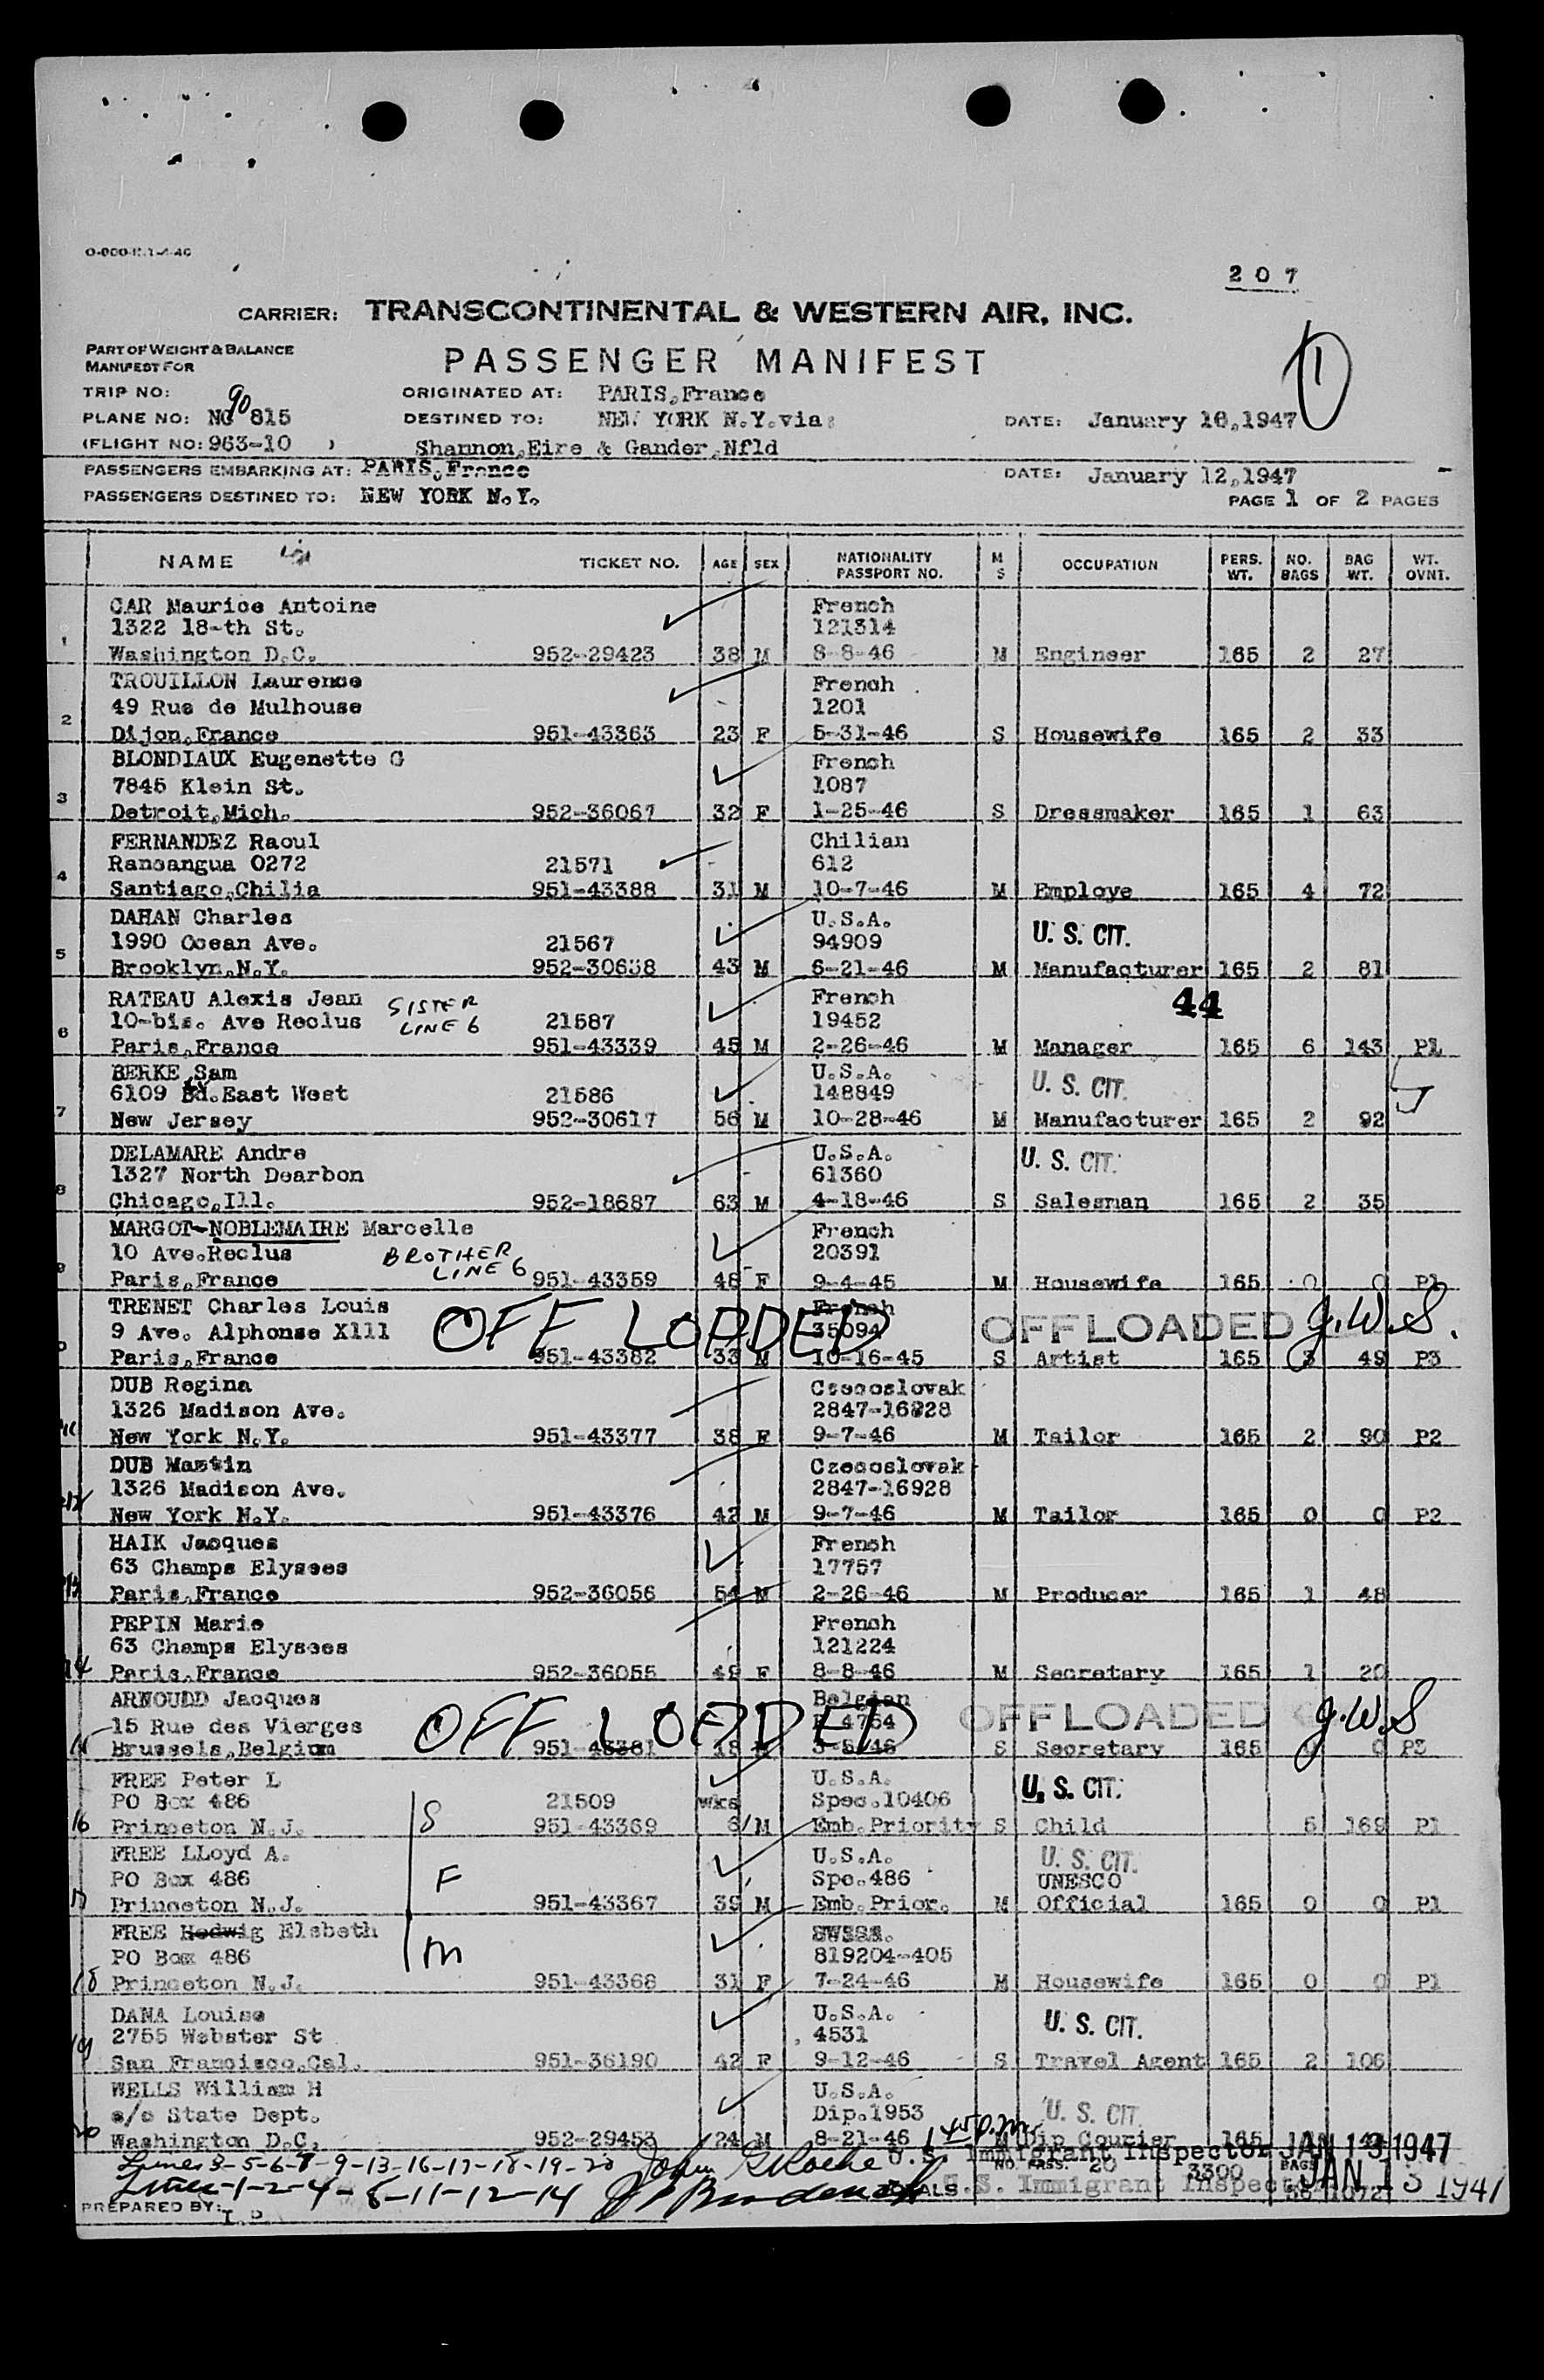 207
CARRIER: TRANSCONTINENTAL & WESTERN AIR, INC.
PART OF WEIGHT & BALANCE
MANIFEST FOR
PASSENGER MANIFEST
TRIP NO:
ORIGINATED AT: PARIS,France
PLANE NO: NC 90 815
DESTINED TO: NEW YORK N.Y.via:
DATE: January 16,1947
1
(FLIGHT NO: 963-10 )
Shannon,Eire & Gander,Nfld
PASSENGERS EMBARKING AT: PARIS,France
DATE: January 12,1947
PASSENGERS DESTINED TO: NEW YORK N.Y.
PAGE 1 OF 2 PAGES
NAME TICKET NO. AGE SEX NATIONALITY PASSPORT NO. M S OCCUPATION PERS. WT. NO. BAGS BAG WT. WT. OVNT.
CAR Maurice Antoine French
1322 18-th St. 121314
1 Washington D.C. 952-29423 38 M 8-8-46 M Engineer 165 2 27
TROUILLON Laurence French
49 Rue de Mulhouse 1201
2 Dijon,France 951-43363 23 F 5-31-46 S Housewife 165 2 33
BLONDIAUX Eugenette G French
7845 Klein St. 1087
3 Detroit,Mich. 952-36067 32 F 1-25-46 S Dressmaker 165 1 63
FERNANDEZ Raoul Chilian
Rancangua 0272 21571 612
4 Santiago,Chilia 951-43388 31 M 10-7-46 M Employe 165 4 72
DAHAN Charles U.S.A.
1990 Ocean Ave. 21567 94909 U. S. CIT.
5 Brooklyn,N.Y. 952-30638 43 M 6-21-46 M Manufacturer 165 2 81
RATEAU Alexis Jean SISTER French 44
10-bis. Ave Reclus LINE 6 21587 19452
6 Paris,France 951-43339 45 M 2-26-46 M Manager 165 6 143 P1
BERKE Sam U.S.A.
6109 East West 21586 148849 U. S. CIT.
7 New Jersey 952-30617 56 M 10-28-46 M Manufacturer 165 2 92
DELAMARE Andre U.S.A. U. S. CIT.
1327 North Dearbon 61360
8 Chicago,Ill. 952-18687 63 M 4-18-46 S Salesman 165 2 35
MARGOT-NOBLEMAIRE Marcelle French
10 Ave.Reclus BROTHER 20391
LINE 6
9 Paris,France 951-43359 48 F 9-4-45 M Housewife 165 0 0 P1
TRENET Charles Louis French
9 Ave. Alphonse X111 OFF LOADED 35094 OFFLOADED J.W.S.
Paris,France 951-43382 33 M 10-16-45 S Artist 165 3 49 P3
DUB Regina Czecoslovak
1326 Madison Ave. 2847-16928
11 New York N.Y. 951-43377 38 F 9-7-46 M Tailor 165 2 90 P2
DUB Martin Czecoslovak
1326 Madison Ave. 2847-16928
12 New York N.Y. 951-43376 42 M 9-7-46 M Tailor 165 0 0 P2
HAIK Jacques French
63 Champs Elysees 17757
13 Paris,France 952-36056 54 M 2-26-46 M Producer 165 1 48
PEPIN Marie French
63 Champs Elysees 121224
14 Paris,France 952-36055 49 F 8-8-46 M Secretary 165 1 20
ARNOUDD Jacques Belgian
15 Rue des Vierges OFF LOADED 4764 OFFLOADED J.W.S
15 Brussels,Belgium 951-43381 18 M 3-5-46 S Secretary 165 0 P3
FREE Peter L U.S.A. U. S. CIT.
PO Box 486 S 21509 wks Spec.10406
16 Princeton N.J. 951-43369 6 M Emb.Priority S Child 5 169 P1
FREE LLoyd A. U.S.A. U. S. CIT.
PO Box 486 F Spe.486 UNESCO
17 Princeton N.J. 951-43367 39 M Emb.Prior. M Official 165 0 0 P1
FREE Hedwig Elsbeth
PO Box 486 m 819204-405
18 Princeton N.J. 951-43368 31 F 7-24-46 M Housewife 165 0 0 P1
DANA Louise U.S.A. U. S. CIT.
2755 Webster St 4531
19 San Francisco,Cal. 951-36190 42 F 9-12-46 S Travel Agent 165 2 106
WELLS William H U.S.A.
c/o State Dept. Dip.1953 U. S. CIT.
20 Washington D.C. 952-29453 24 M 8-21-46 M Dip Courier 165
Lines 3-5-6-7-9-13-16-17-18-19-20 John G Roche U.S. Immigrant Inspector JAN 13 1947
NO. PASS. 20 3300
Lines-1-2-4-8-11-12-14 TOTALS U.S. Immigrant Inspector JAN 13 1947
PREPARED BY: